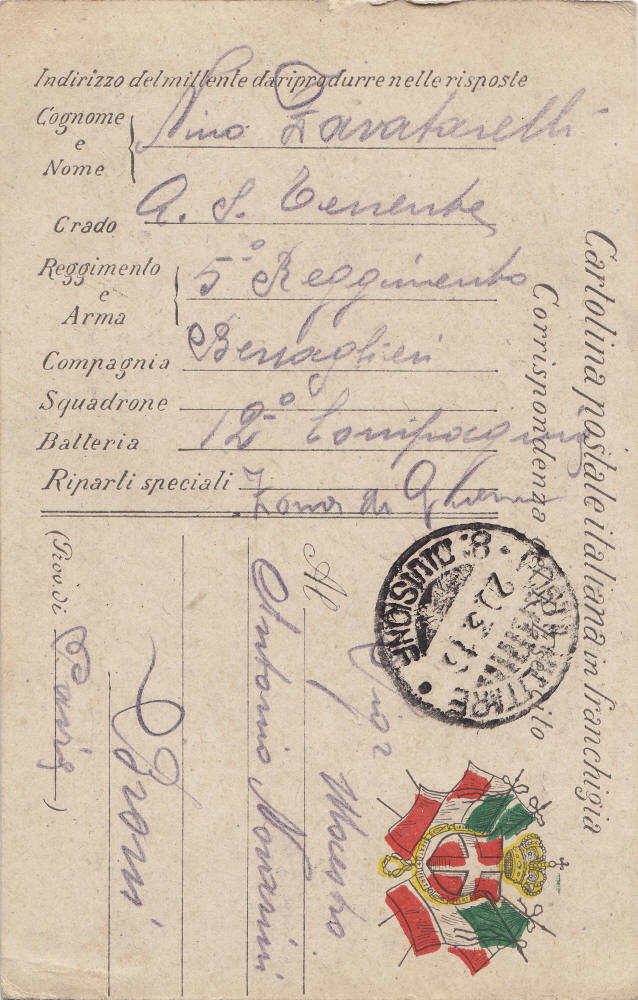 Indirizzo del mittente da riprodurre nelle risposte
Cognome e Nome Nino Zavatarelli
Grado A. S. Tenente
Reggimento e Arma 5º Reggimento
Compagnia Bersaglieri
Squadrone
Batteria 12º Compagnia
Riparti speciali Zona di Guerra
Cartolina postale italiana in franchigia
Corrispondenza
POSTA MILITARE
8. DIVISIONE
Al Sigr Maestro
Antonio
Broni
(Prov. di Pavia)